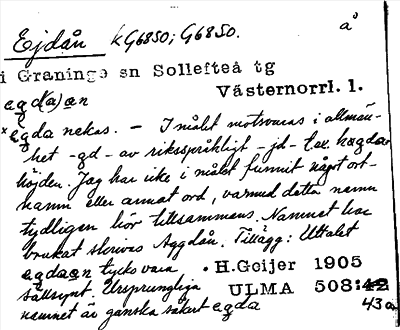 Ejdån kG6850; G6850. å
i Graninge sn Sollefteå tg
Västernorrl. l.
egd(a)an
*egda nekas. – I målet motsvaras i allmän-
het -gd- av riksspråkligt -jd- t.ex. høgda
höjden. Jag har icke i målet funnit något ort-
namn eller annat ord, varmed detta namn
tydligen hör tillsammans. Namnet har
brukat skrivas Äggdån. Tillägg: Uttalet
egdaan tycks vara • H.Geijer 1905
sällsynt. Ursprungliga ULMA 508:42
namnet är ganska säkert egda 43a